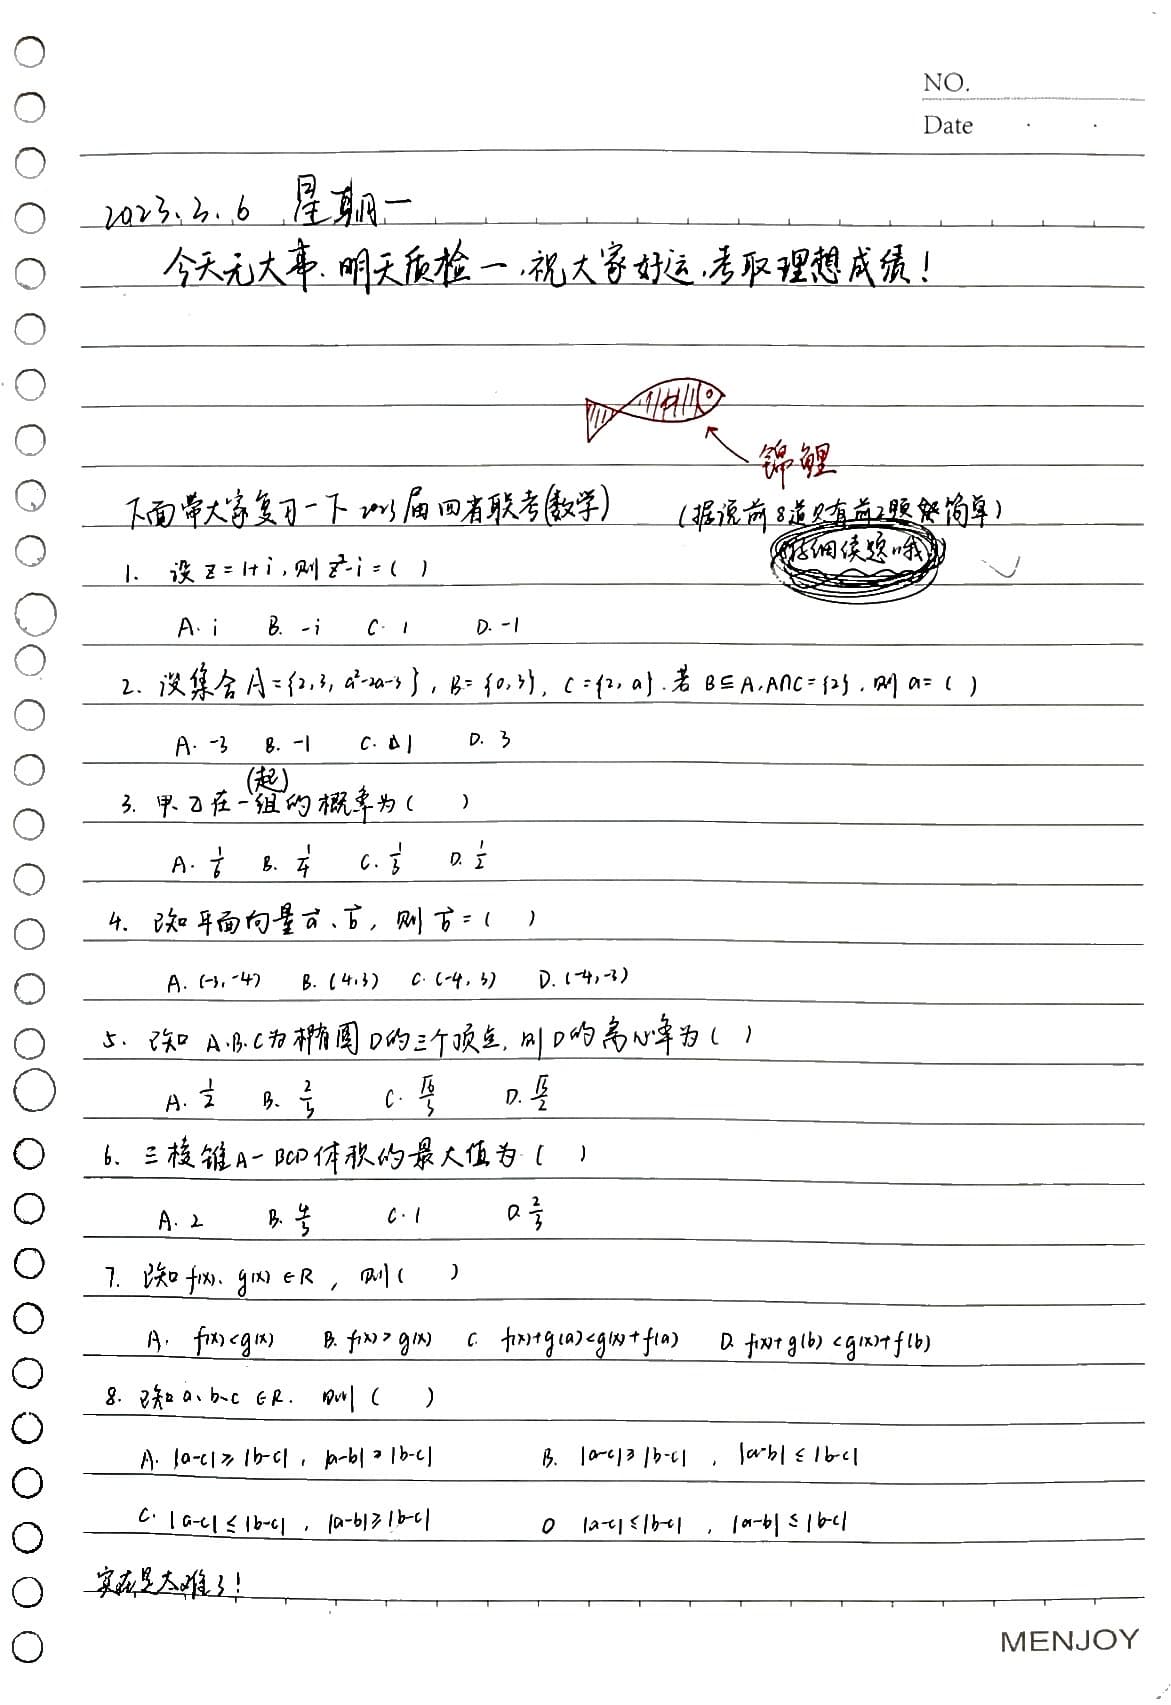 NO.
Date
2023.3.6 星期一
今天无大事.明天质检一,祝大家好运,考取理想成绩!
锦鲤
下面带大家复习一下2023届四省联考(数学) (据说前8道只有前2题很简单)
仔细读题哦
1. 设z=1+i,则z²-i=( )
A. i B. -i C. 1 D. -1
2. 设集合A={2,3,a²-2a-3},B={0,3},C={2,a}.若B⊆A,A∩C={2},则a=( )
A. -3 B. -1 C. 1 D. 3
(起)
3. 甲、乙在一组的概率为( )
A. 1/6 B. 1/4 C. 1/3 D. 1/2
4. 已知平面向量a⃗、b⃗,则b⃗=( )
A. (-3,-4) B. (4,3) C. (-4,3) D. (-4,-3)
5. 已知A.B.C为椭圆D的三个顶点,则D的离心率为( )
A. 1/2 B. 2/3 C. √6/3 D. √3/2
6. 三棱锥A-BCD体积的最大值为( )
A. 2 B. 4/3 C. 1 D. 2/3
7. 已知f(x)、g(x)∈R,则( )
A. f(x)<g(x) B. f(x)>g(x) C. f(x)+g(a)<g(x)+f(a) D. f(x)+g(b)<g(x)+f(b)
8. 已知a、b、c∈R.则( )
A. |a-c|≥|b-c|,|a-b|≥|b-c| B. |a-c|≥|b-c|,|a-b|≤|b-c|
C. |a-c|≤|b-c|,|a-b|≥|b-c| D |a-c|≤|b-c|,|a-b|≤|b-c|
实在是太难了!
MENJOY